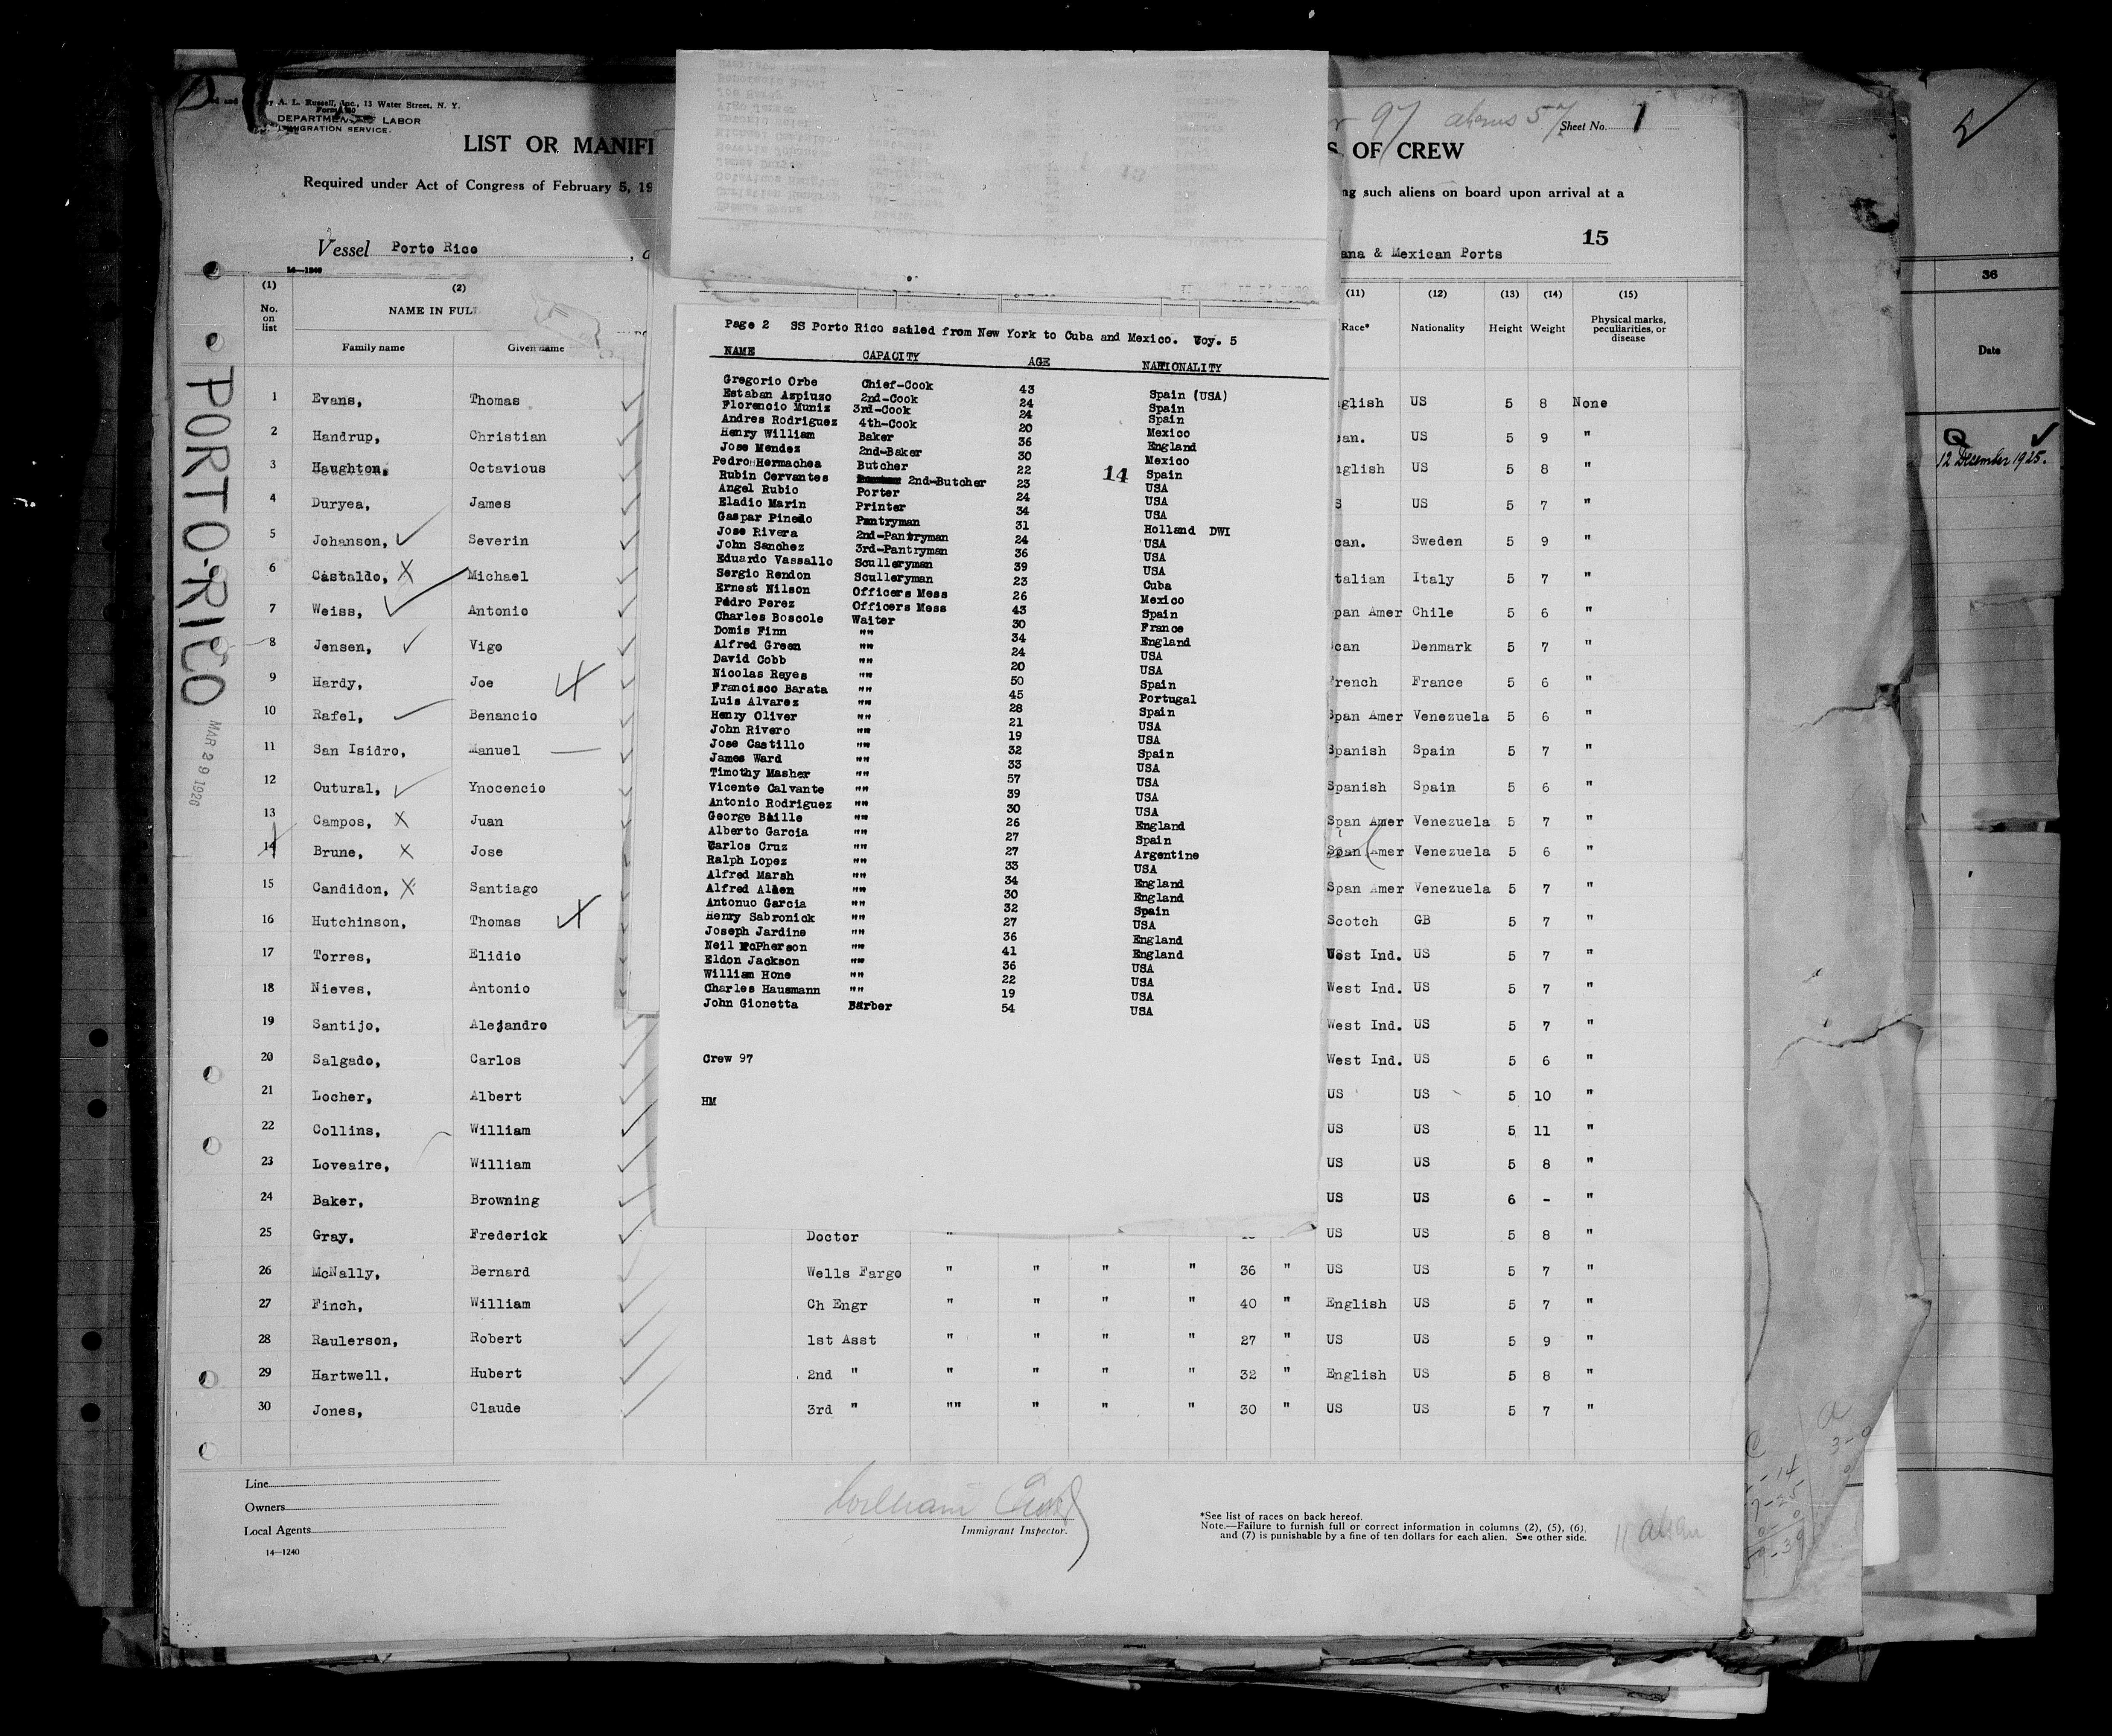 y A. L. Russell, Inc., 13 Water Street, N. Y.
DEPARTMENT LABOR
IMMIGRATION SERVICE.
LIST OR MANIFE
S OF CREW
97 aliens 57
Sheet No. 1
Required under Act of Congress of February 5, 19
ng such aliens on board upon arrival at a
15
Vessel Porto Rico
ana & Mexican Ports
14—1240
(1) (2) (11) (12) (13) (14) (15)
No. on list NAME IN FULL Race* Nationality Height Weight Physical marks, peculiarities, or disease
Family name Given name
1 Evans, Thomas glish US 5 8 None
2 Handrup, Christian an. US 5 9 "
3 Haughton, Octavious glish US 5 8 "
4 Duryea, James S US 5 7 "
5 Johanson, Severin can. Sweden 5 9 "
6 Castaldo, X Michael talian Italy 5 7 "
7 Weiss, Antonio pan Amer Chile 5 6 "
8 Jensen, Vigo can Denmark 5 7 "
9 Hardy, Joe rench France 5 6 "
10 Rafel, Benancio Span Amer Venezuela 5 6 "
11 San Isidro, Manuel Spanish Spain 5 7 "
12 Outural, Ynocencio Spanish Spain 5 6 "
13 Campos, X Juan Span Amer Venezuela 5 7 "
14 Brune, X Jose Span Amer Venezuela 5 6 "
15 Candidon, X Santiago Span Amer Venezuela 5 7 "
16 Hutchinson, Thomas Scotch GB 5 7 "
17 Torres, Elidio West Ind. US 5 7 "
18 Nieves, Antonio West Ind. US 5 7 "
19 Santijo, Alejandro West Ind. US 5 7 "
20 Salgado, Carlos West Ind. US 5 6 "
21 Locher, Albert US US 5 10 "
22 Collins, William US US 5 11 "
23 Loveaire, William US US 5 8 "
24 Baker, Browning US US 6 - "
25 Gray, Frederick Doctor " US US 5 8 "
26 McNally, Bernard Wells Fargo " " " " 36 " US US 5 7 "
27 Finch, William Ch Engr " " " " 40 " English US 5 7 "
28 Raulerson, Robert 1st Asst " " " " 27 " US US 5 9 "
29 Hartwell, Hubert 2nd " " " " " 32 " English US 5 8 "
30 Jones, Claude 3rd " "" " " " 30 " US US 5 7 "
Line
Owners
Local Agents
14—1240
Immigrant Inspector.
*See list of races on back hereof.
Note.—Failure to furnish full or correct information in columns (2), (5), (6),
and (7) is punishable by a fine of ten dollars for each alien. See other side.
11 alien
PORTO-RICO
MAR 29 1926
Page 2 SS Porto Rico sailed from New York to Cuba and Mexico. Voy. 5
NAME CAPACITY AGE NATIONALITY
Gregorio Orbe Chief-Cook 43 Spain (USA)
Estaban Azpiuzo 2nd-Cook 24 Spain
Florencio Muniz 3rd-Cook 24 Spain
Andres Rodriguez 4th-Cook 20 Mexico
Henry William Baker 36 England
Jose Mendez 2nd-Baker 30 Mexico
Pedro Hermachea Butcher 22 Spain
14
Rubin Cervantes 2nd-Butcher 23 USA
Angel Rubio Porter 24 USA
Eladio Marin Printer 34 USA
Gaspar Pinedo Pantryman 31 Holland DWI
Jose Rivera 2nd-Pantryman 24 USA
John Sanchez 3rd-Pantryman 36 USA
Eduardo Vassallo Sculleryman 39 USA
Sergio Rendon Sculleryman 23 Cuba
Ernest Nilson Officers Mess 26 Mexico
Pedro Perez Officers Mess 43 Spain
Charles Boscole Waiter 30 France
Domis Finn "" 34 England
Alfred Green "" 24 USA
David Cobb "" 20 USA
Nicolas Reyes "" 50 Spain
Francisco Barata "" 45 Portugal
Luis Alvarez "" 28 Spain
Henry Oliver "" 21 USA
John Rivero "" 19 USA
Jose Castillo "" 32 Spain
James Ward "" 33 USA
Timothy Masher "" 57 USA
Vicente Calvante "" 39 USA
Antonio Rodriguez "" 30 USA
George Baille "" 26 England
Alberto Garcia "" 27 Spain
Carlos Cruz "" 27 Argentine
Ralph Lopez "" 33 USA
Alfred Marsh "" 34 England
Alfred Allen "" 30 England
Antonuo Garcia "" 32 Spain
Henry Sabronick "" 27 USA
Joseph Jardine "" 36 England
Neil McPherson "" 41 England
Eldon Jackson "" 36 USA
William Hone "" 22 USA
Charles Hausmann "" 19 USA
John Gionetta Barber 54 USA
Crew 97
HM
36
Date
12 December 1925.